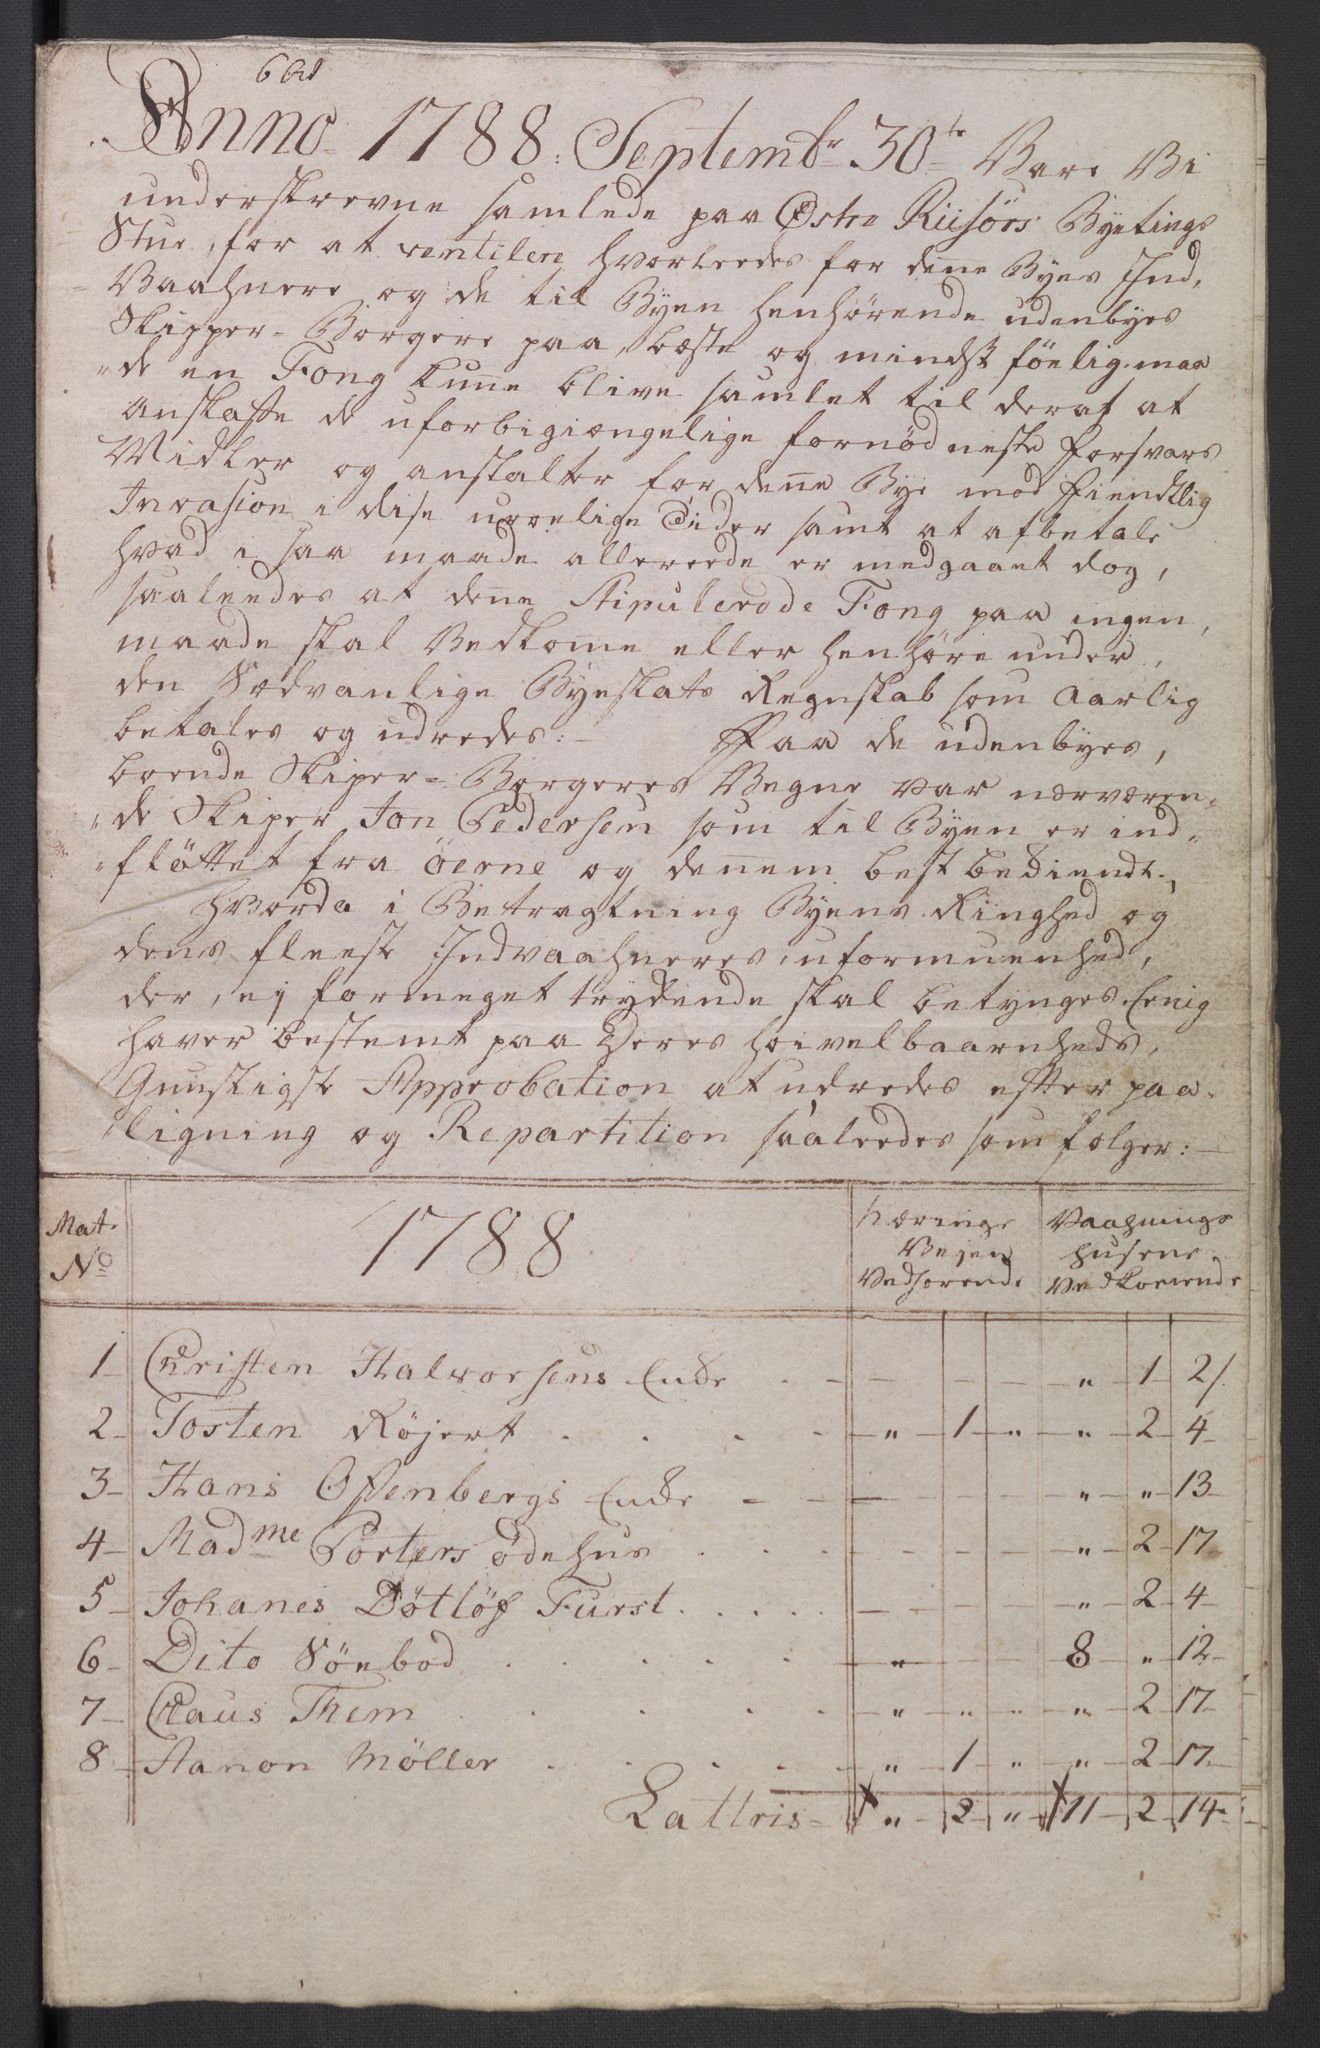 Anno 1788: Septembr 30te Vare Vi
underskrevne samlede paa Østre Riisörs Byetings
Stue, for at ventilere hvorleedes for dene Byes Ind,
Vaahnere og de til Byen henhørende udenbyes
Skipper-Borgere paa beste og mindst föelig maa
"de en Fong kune blive samlet til deraf at
anskaffe de uforbigiængelige fornödneste forsvars
Midler og anstalter for dene Bye mod fiendtlig
Invasion i dise uroelige Tider samt at afbetale
hvad i saa maade allereede er medgaaet dog,
saaleedes at dene Stipulerede Fong paa ingen,
maade skal Vedkome eller henhöre under,
den Sædvanlige Byeskats Regnskab som aarlig
betales og udredes:- Paa de udenbyes,
boende Skiper-Borgeres Vegne var nærværen,
"de Skiper Jon Pedersen som til Byen er ind,,
"flöttet fra öerne og dennem best bekiendt.,
hvorda i Betragtning Byens Ringhed og
dens fleeste Indvaahneres uformuenhed,
der, ej formeget trykende skal betynges Eenig
haver bestemt paa Deres höivelbaarnheds,
Gunstigste Approbation at udredes efter paa,
"ligning og Repartition saaleedes som følger:-
Mat. No 1788 Nærings Vejen Vedhørende Vaahnings husene Vedkomende
1 Christen Halvorsens Enke . - - - - " 1 2/.
2 Tosten Røjert . . . . " 1 " " 2 4
3 Hans Ofsenbergs Enke - - - - - " " 13
4 Madme Porters øde hus . . . - - - " 2 17
5 Johanes Döttlöf Furst . . . . . - - - " 2 4
6 Dito Söebod . . . . . " - - 8 " 12
7 Claus Them . . . . " " " " 2 17
8 Aanon Möller . . . . . " 1 " " 2 17
Lattris " 2 " 11 2 14